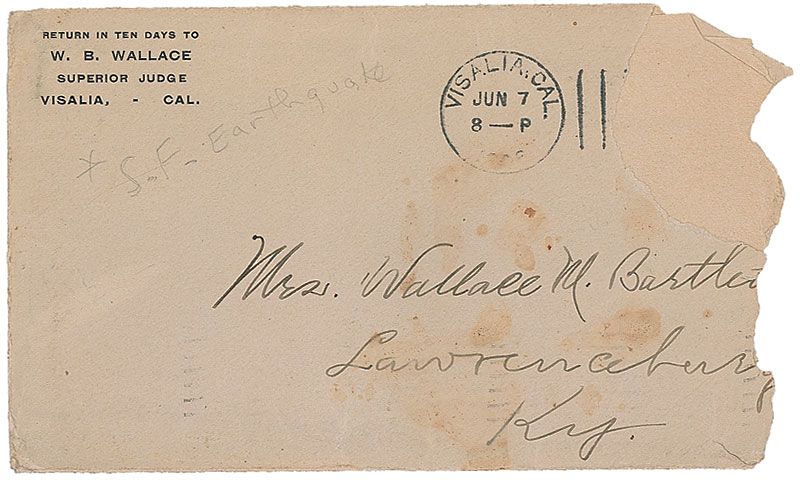 RETURN IN TEN DAYS TO
W. B. WALLACE
SUPERIOR JUDGE
VISALIA, - CAL.
* S.F. Earthquake
VISALIA, CAL.
JUN 7
8 — P
Mrs. Wallace M.
Lawrenceburg
Ky.